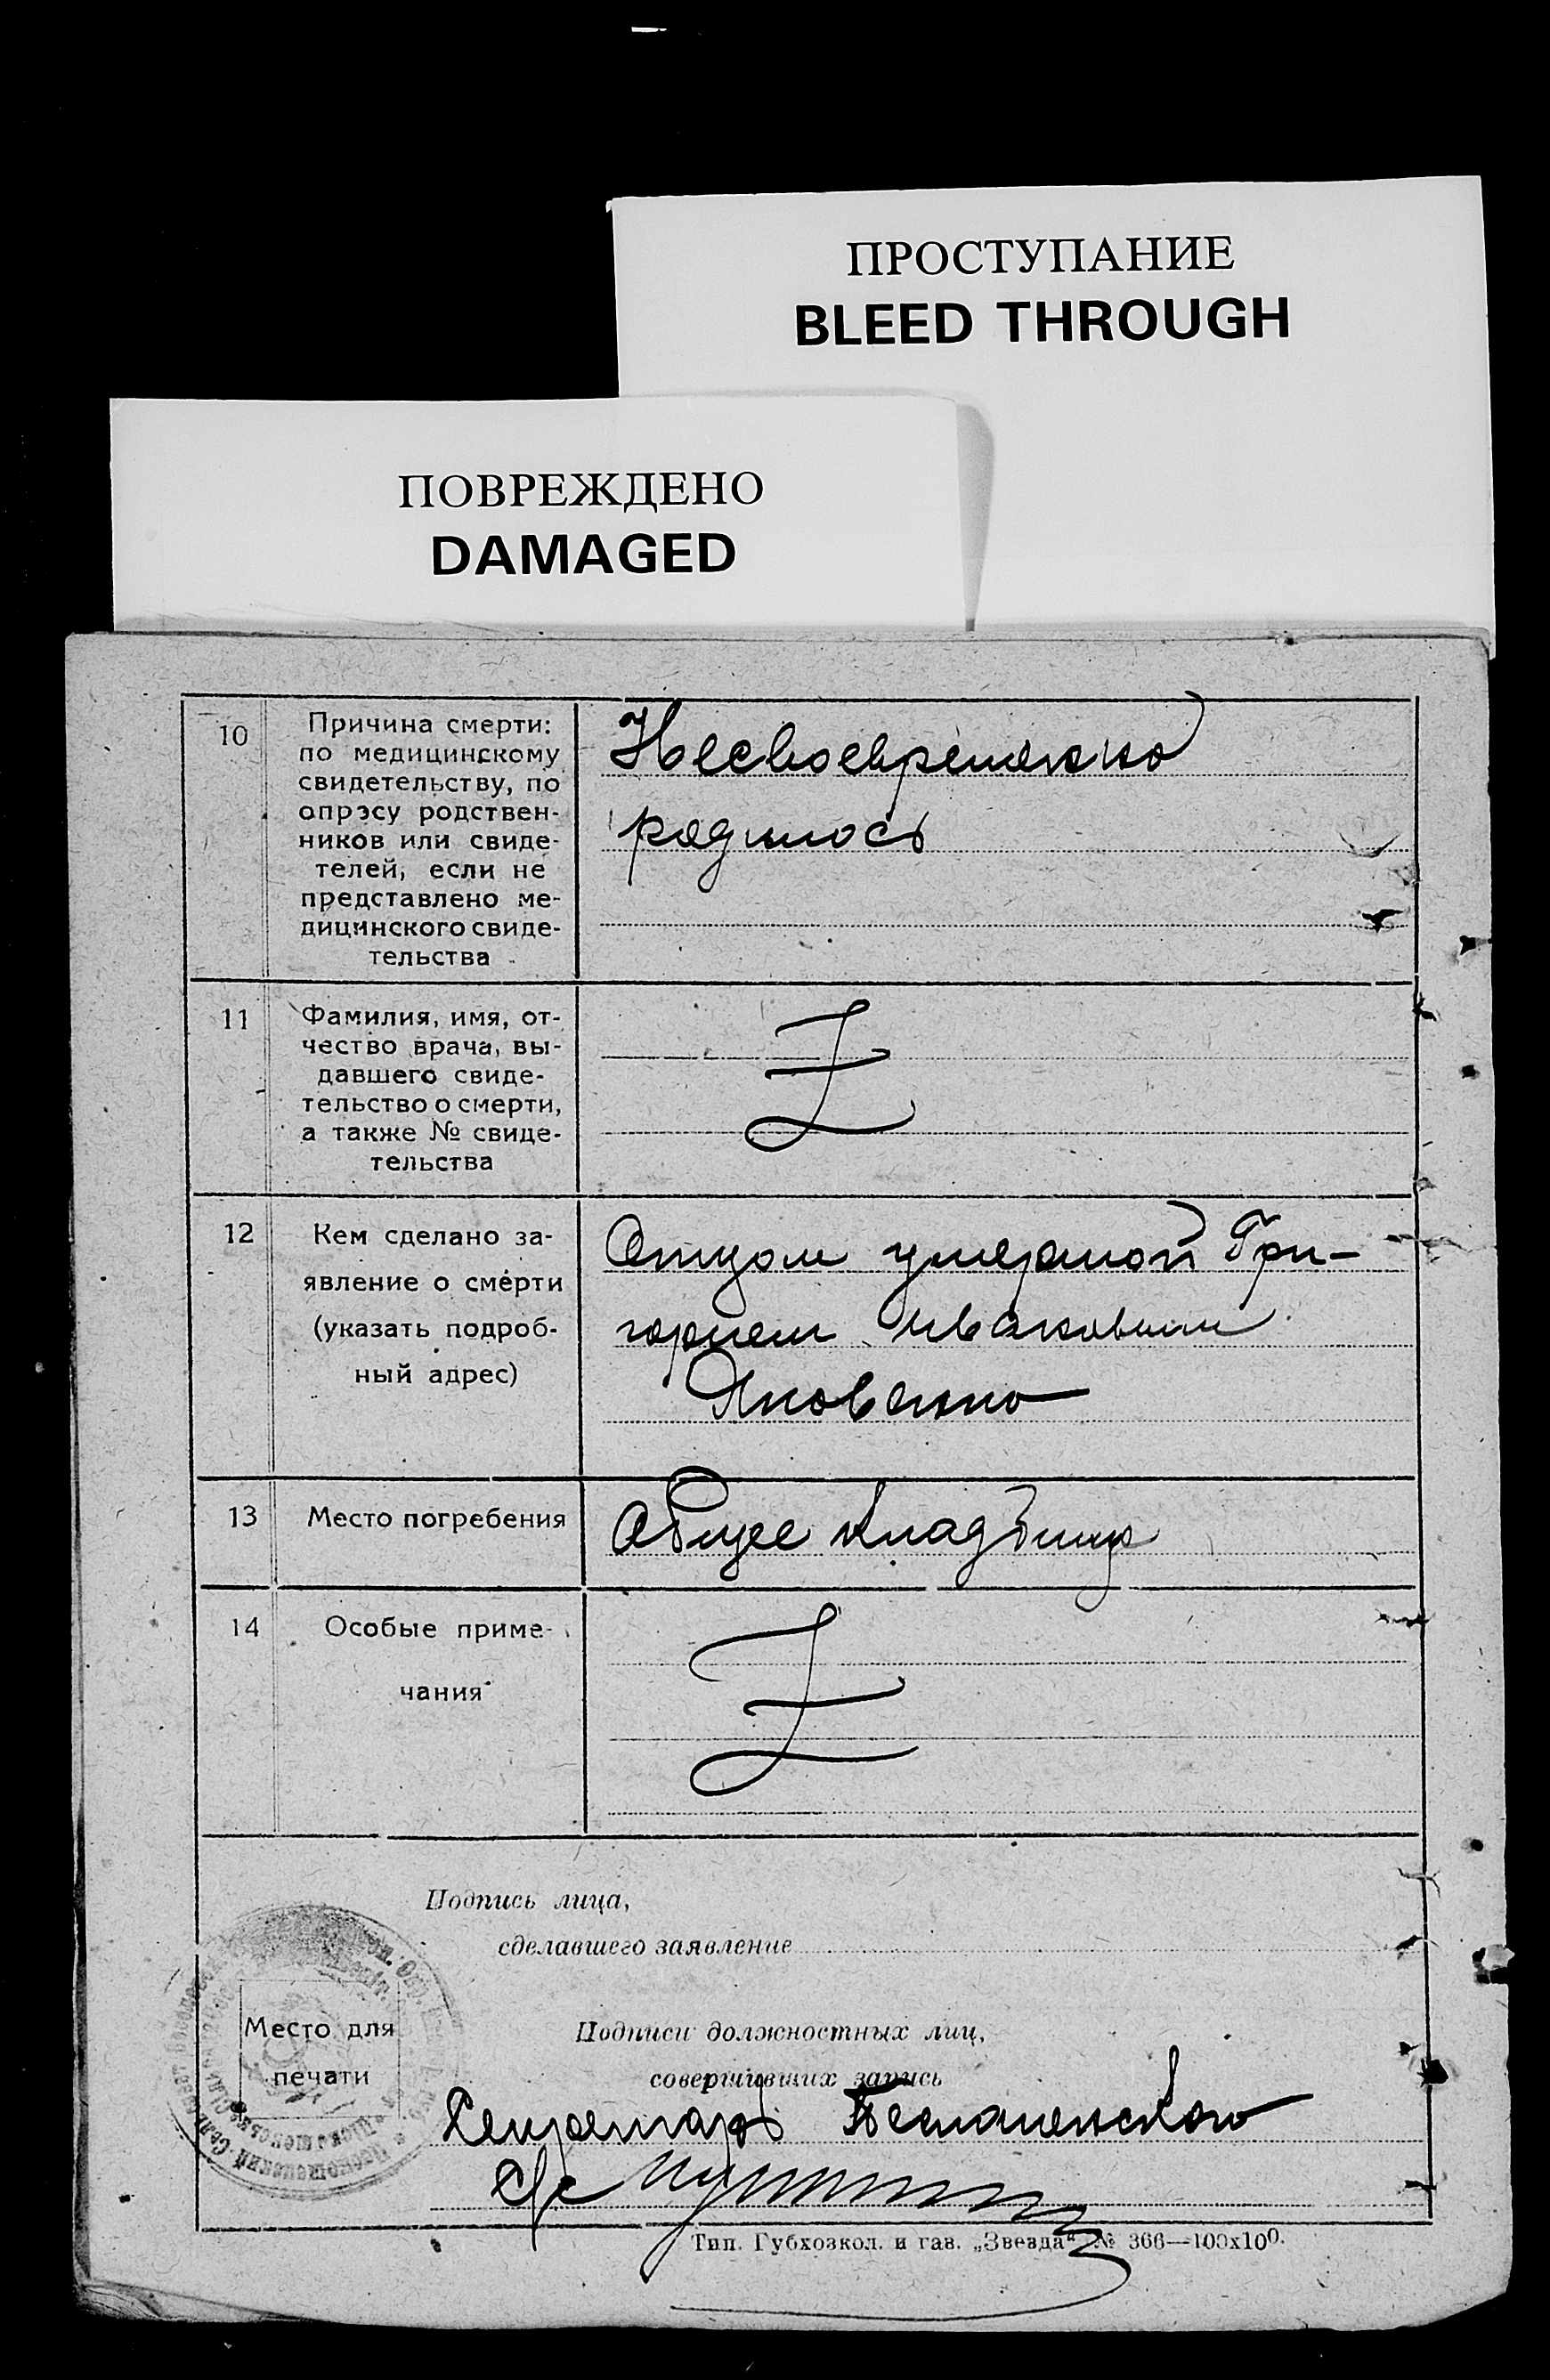 ПРОСТУПАНИЕ
BLEED THROUGH
ПОВРЕЖДЕНО
DAMAGED
10
Причина смерти:
по медицинскому
свидетельству, по
опросу родствен-
ников или свиде-
телей, если не
представлено ме-
дицинского свиде-
тельства
Несвоевременно
родилось
11
Фамилия, имя, от-
чество врача, вы-
давшего свиде-
тельство о смерти,
а также № свиде-
тельства
Z
12
Кем сделано за-
явление о смерти
(указать подроб-
ный адрес)
Отцом умершой Гри-
горием Ивановым
Яковенко
13
Место погребения
Общее кладбище
14
Особые приме-
чания
Z
Подпись лица,
сделавшего заявление
Место для
печати
Подписи должностных лиц,
совершивших запись
Секретарь
С/с
Тип. Губхозкол. и газ. „Звезда“ № 366—100х100.